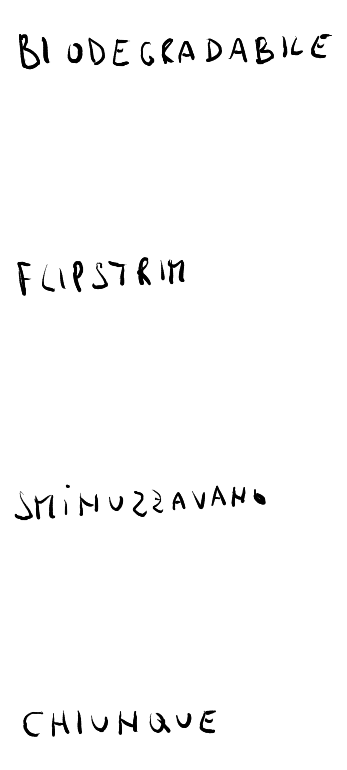 BIODEGRADABILE
FLIPSTRIM
SMiNUZZAVANO
CHIUNQUE